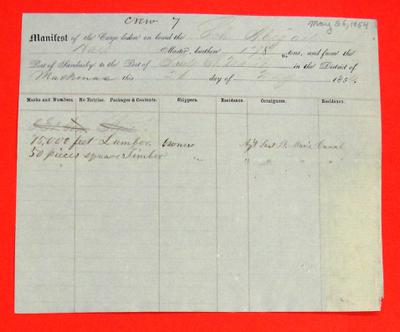 Crew 7
May 26, 1854
Manifest of the Cargo laden on board the Sch Abigail
Master, burthen 178 tons, and from the
Port of Sandusky to the Port of Sault St Marie in the District of
Mackinac this 26 day of May 1854
Marks and Numbers. No Entries. Packages & Contents. Shippers. Residence. Consignees. Residence.
75,000 feet Lumber Owners Agt Saut St. Marie Canal
50 pieces square Timber " " " " "